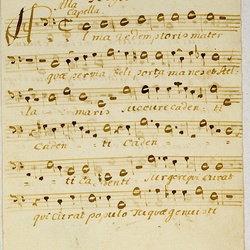 Alla
Capella
Alma redemptoris mater
quæ pervia cæli porta manes et stel
la maris succure cadenti
Cadenti Cadenti
ti Cadenti surgere qui curat
qui Curat populo tu quæ genuisti